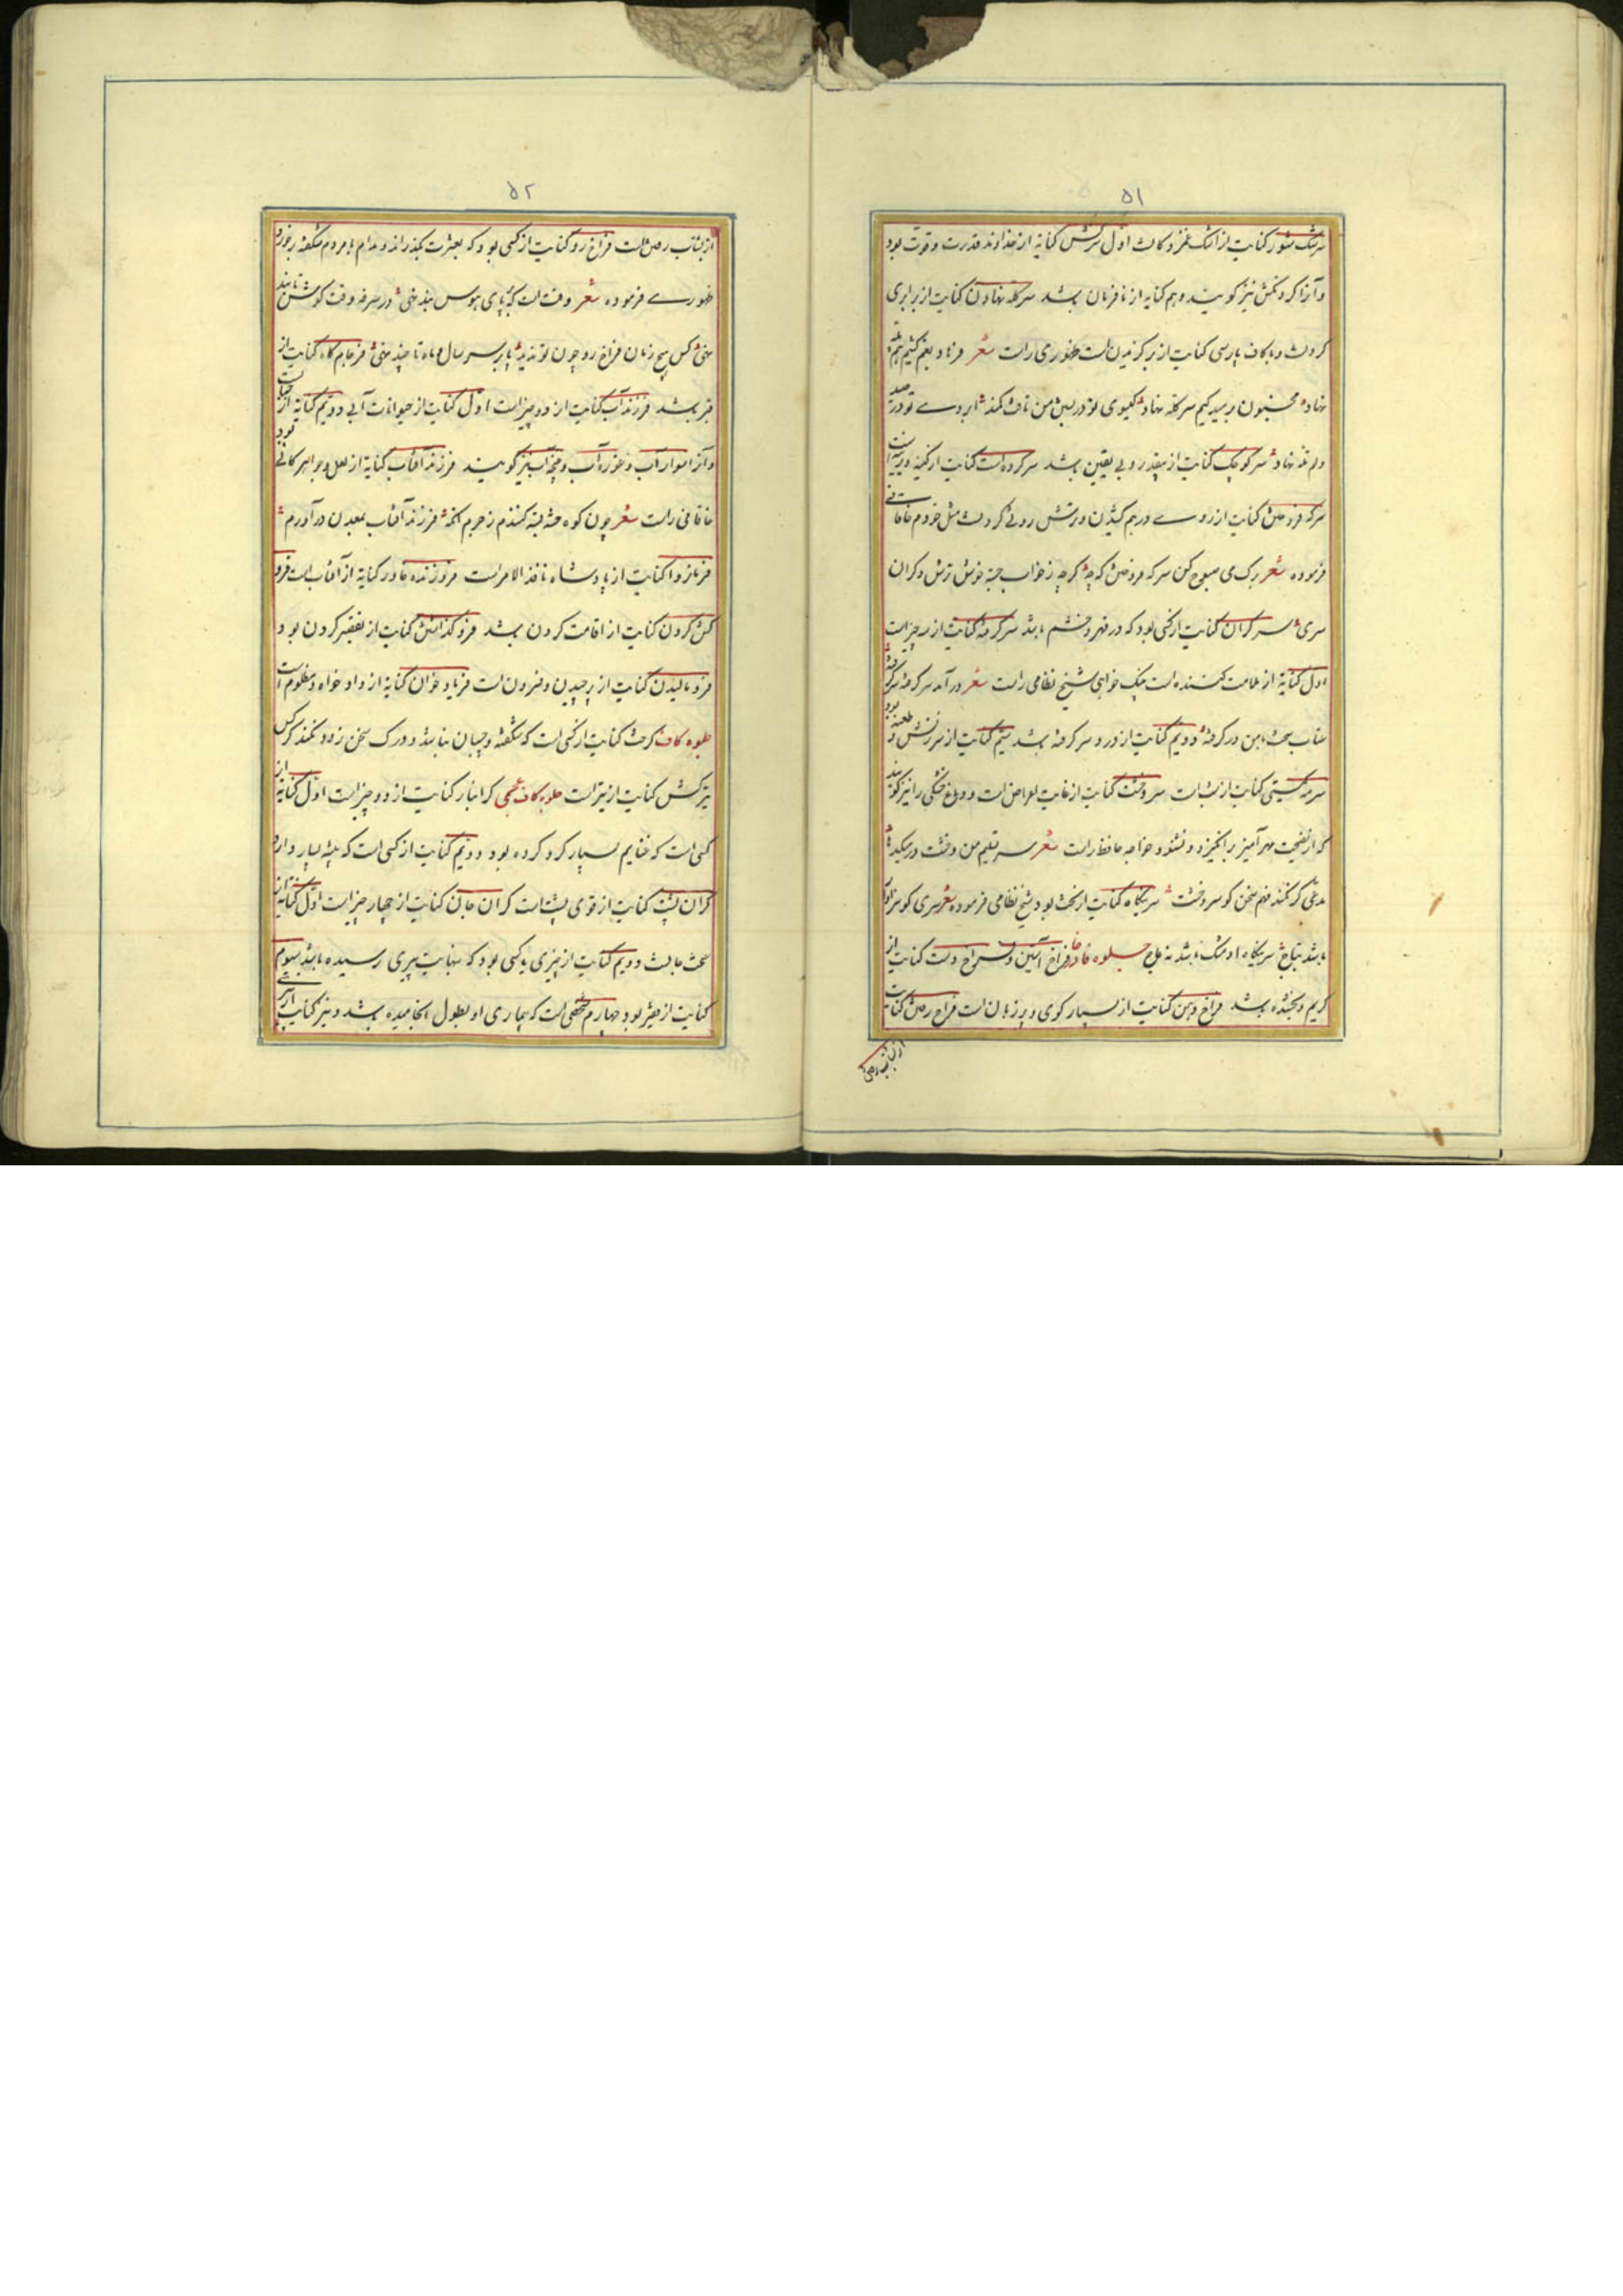 ۵۱
سرشک شور کنایت از اشک غم و کاث اول سرکش کنایة از خداوند قدرت و قوت بود
و آنرا کردنکش نیز کویند و هم کنایه از نافرمان باشد سرکله نهادن کنایت از برابری
کردنست و با کاف پارسی کنایت از بر کزیدن است ظهوری راست شعر فرهاد بغم کشیم
نهاد مجنون برسیدکیم سرکله نهاد کیسوی تو در من ناف کمند ابروی تو در
نهاد سرکوچک کنایت از بیقدر و بی یقین باشد سرکرده است کنایت از کینه دیرینه است
سرکه فروختن کنایت از روی درهم کشیدن و ترش روئی کردنست خاقانی
فرموده شعر رک می صبوح کن سرکه فروختن که چه کرچه ز خواب جسته خوش ترش و کران
سری سر کران کنایت از کسی بود که در قهر و خشم باشد سرکرفته کنایت از سه چیز است
اول کنایة از ملامت کننده است شیخ نظامی راست شعر در آمد سرکرفته سرکرفته
عتاب سخت با من در کرفته دویم کنایت از در و سرکرفته باشد سیم کنایت از سرزنش و طعنه بود
سرمه کیتی کنایت از شب است سر و خشت کنایت از غایت اعراض است و دماغ خشکی را نیز کویند
که از نصیحت مهر آمیز برانکیزد و نشنود خواجه حافظ راست شعر سر تسلیم من و خشت در میکدها
مدعی کر نکند فهم سخن کو سر و خشت سریکاه کنایت از تخت بود شیخ نظامی فرموده شعر سری کو سزاوار
باشد بتاج سریکاه او مشک باشد نه عاج جلوه فا فراخ آستین و فراخ دست کنایت از
کریم و بخشنده باشد فراخ دهن کنایت از بسیار کوی و هرزه زبان است فراخ رفتن کنایت
از شتاب رفتن
۵۲
از شتاب رفتن است فراخ رو کنایت از کسی بود که بعشرت بگذراند و مدام با مردم شکفته برخورد
ظهوری فرموده شعر وقت است که پای هوس بند نهی در سرفه وقت کوشش تا چند
نهی کس هیچ زمان فراخ رو چون تو ندید پا بر سر سال و ماه تا چند نهی فرجام کاه کنایت از
قبر باشد فرزند آب کنایت از دو چیز است اول کنایت از حیوانات آبی دویم کنایة از حباب بود
و آنرا سوار آب و غوزه آب و غنچه آب نیز کویند فرزند آفتاب کنایة از لعل و جواهر کانی
خاقانی راست شعر چون کوه خسته کندم ز جرم آنکه فرزند آفتاب بمعدن در آورم
فرمانروا کنایت از پادشاه نافذ الامر است فروزنده خاور کنایه از آفتاب است فرو
کش کردن کنایت از اقامت کردن باشد فروکذاشتن کنایت از تقصیر کردن بود
فرو مالیدن کنایت از برچیدن و فشردن است فریاد خوان کنایة از داد خواه و مظلوم است
جلوه کاف کرخت کنایت از کسی است که شکفته و چسبان نباشد و درک سخن زود نکند کرکس
تیرکش کنایت از تیر است جلوه کاف عجمی کرانبار کنایت از دو چیز است اول کنایة از
کسی است که غنایم بسیار کرد کرده بود و دویم کنایت از کسی است که بنه بسیار دارد
کران پشت کنایت از قوی پشت است کران جان کنایت از چهار چیز است اول کنایة از
سخت جانست دویم کنایت از چیزی یا کسی بود که بنهایت پیری رسیده باشد سیوم
کنایت از فقیر بود چهارم شخصی است که بیماری او بطول انجامیده باشد و نیز کنایت از